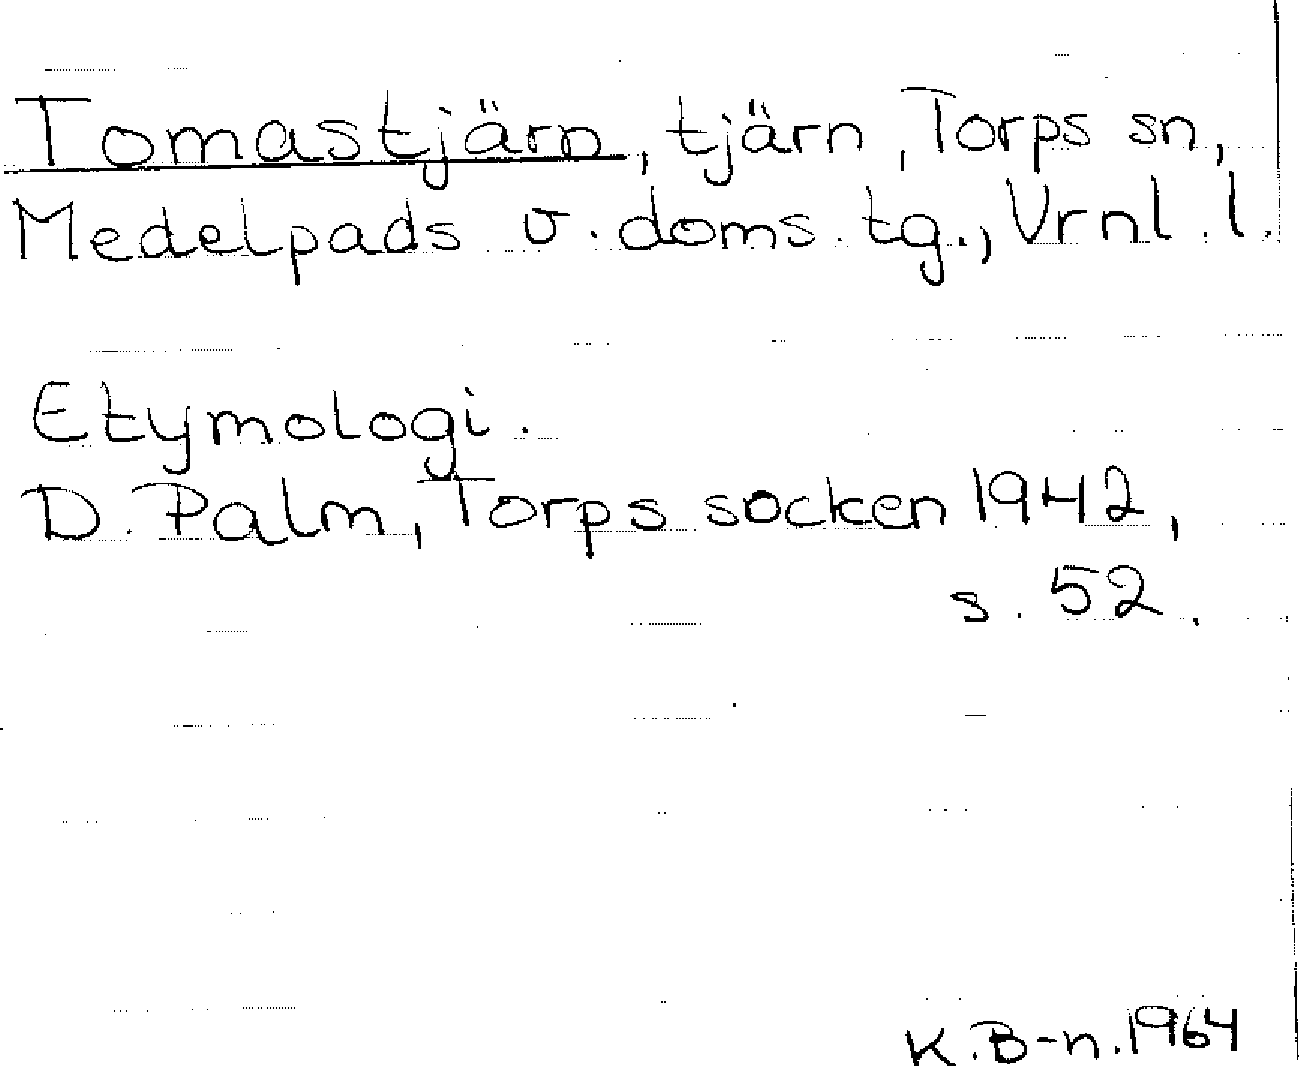 Tomastjärn, tjärn, Torps sn,
Medelpads v. doms. tg., Vrnl. l.
Etymologi.
D. Palm, Torps socken 1942,
s. 52.
K. B-n. 1964